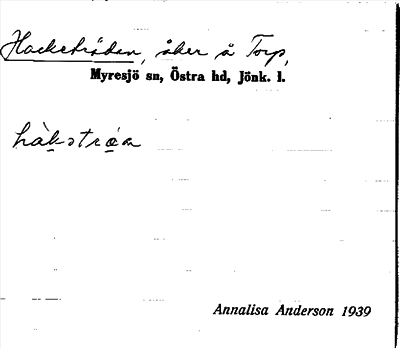 Hacketräden, åker å Torp,
Myresjö sn, Östra hd, Jönk. l.
Annalisa Anderson 1939